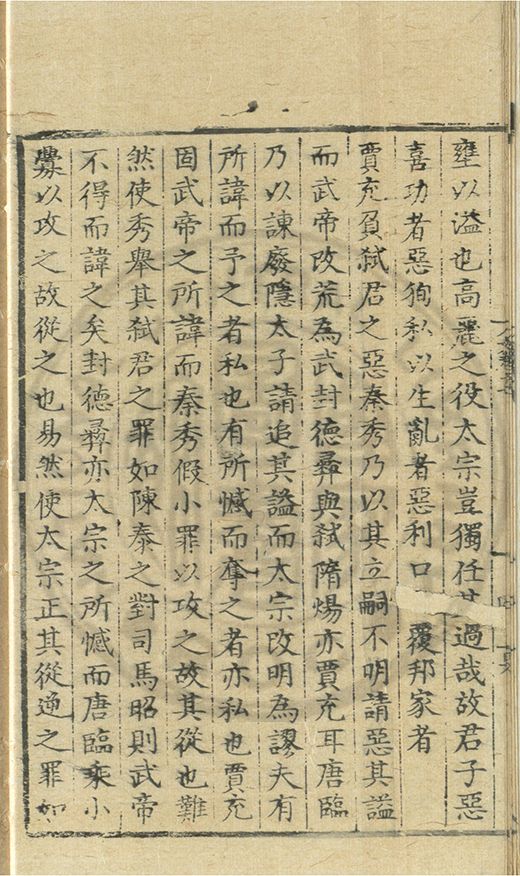 壅以溢也高麗之役太宗豈獨任其過哉故君子惡
喜功者惡狥私以生亂者惡利口覆邦家者
賈充負弑君之惡秦秀乃以其立嗣不明請惡其諡
而武帝改荒為武封德彞與弑隋煬亦賈充耳唐臨
乃以諫廢隱太子請追其諡而太宗改明為謬夫有
所諱而予之者私也有所憾而奪之者亦私也賈充
固武帝之所諱而秦秀假小罪以攻之故其從也難
然使秀舉其弑君之罪如陳泰之對司馬昭則武帝
不得而諱之矣封德彞亦太宗之所憾而唐臨乘小
釁以攻之故從之也易然使太宗正其從逆之罪如